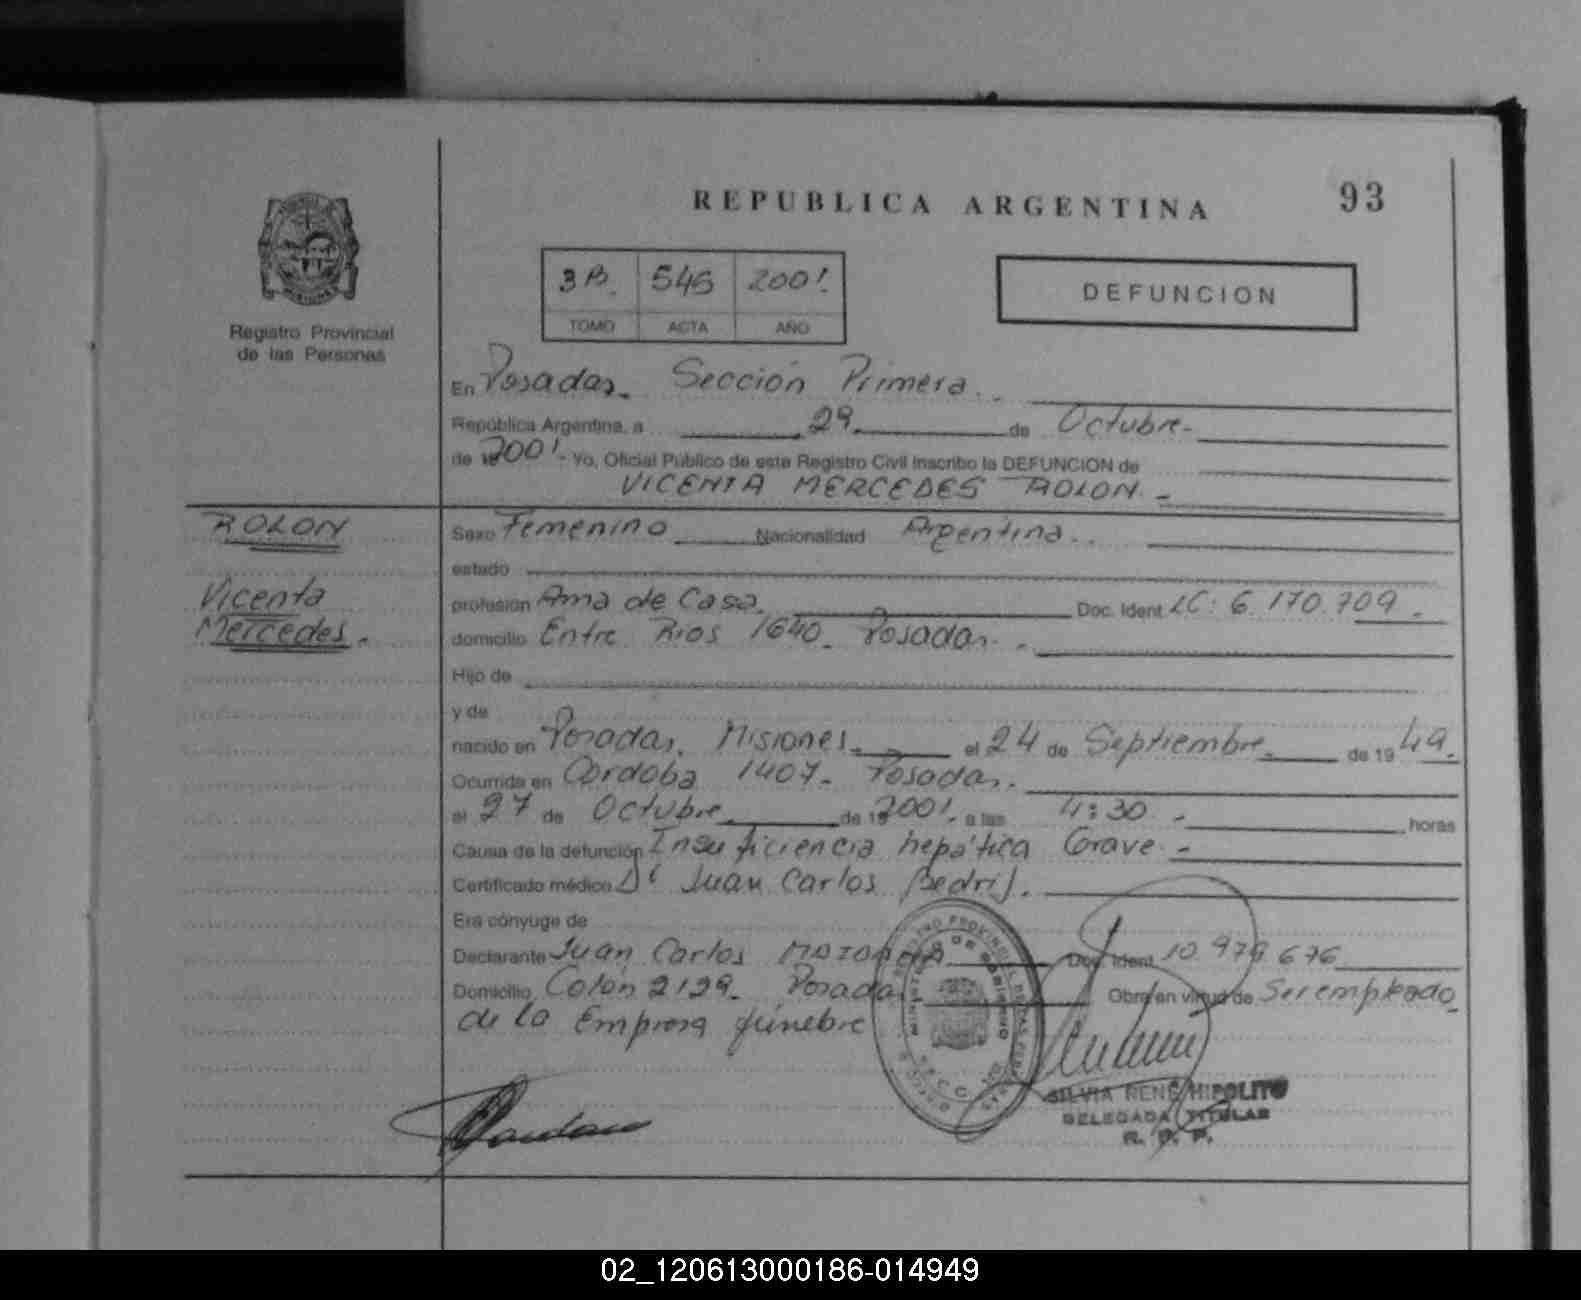 REPUBLICA ARGENTINA
93
Registro Provincial
de las Personas
3B. 546 2001.
TOMO ACTA AÑO
DEFUNCION
En Posadas. Sección Primera.
República Argentina, a 29 de Octubre-
de 19 2001- Yo, Oficial Público de este Registro Civil inscribo la DEFUNCION de
VICENTA MERCEDES ROLON. -
ROLON
Vicenta
Mercedes.
Sexo Femenino Nacionalidad Argentina.
estado
profesión Ama de Casa. Doc. Ident LC: 6.170.709.
domicilio Entre Rios 1640. Posadas.
Hijo de
y de
nacido en Posadas. Misiones. el 24 de Septiembre. de 19 49.
Ocurrida en Córdoba 1407- Posadas.
el 27 de Octubre. de 19 2001. a las 4:30. - horas
Causa de la defunción Insuficiencia hepática Grave. -
Certificado médico Dr Juan Carlos
Era cónyuge de
Declarante Juan Carlos Doc. Ident 10.979.676
Domicilio Colón 2129. Posadas Obra en virtud de Ser empleado
de la Empresa fúnebre
REGISTRO PROVINCIAL DE LAS PERSONAS
MINISTERIO DE GOBIERNO
SILVIA RENE HIPOLITO
DELEGADA TITULAR
R. P. P.
02_120613000186-014949